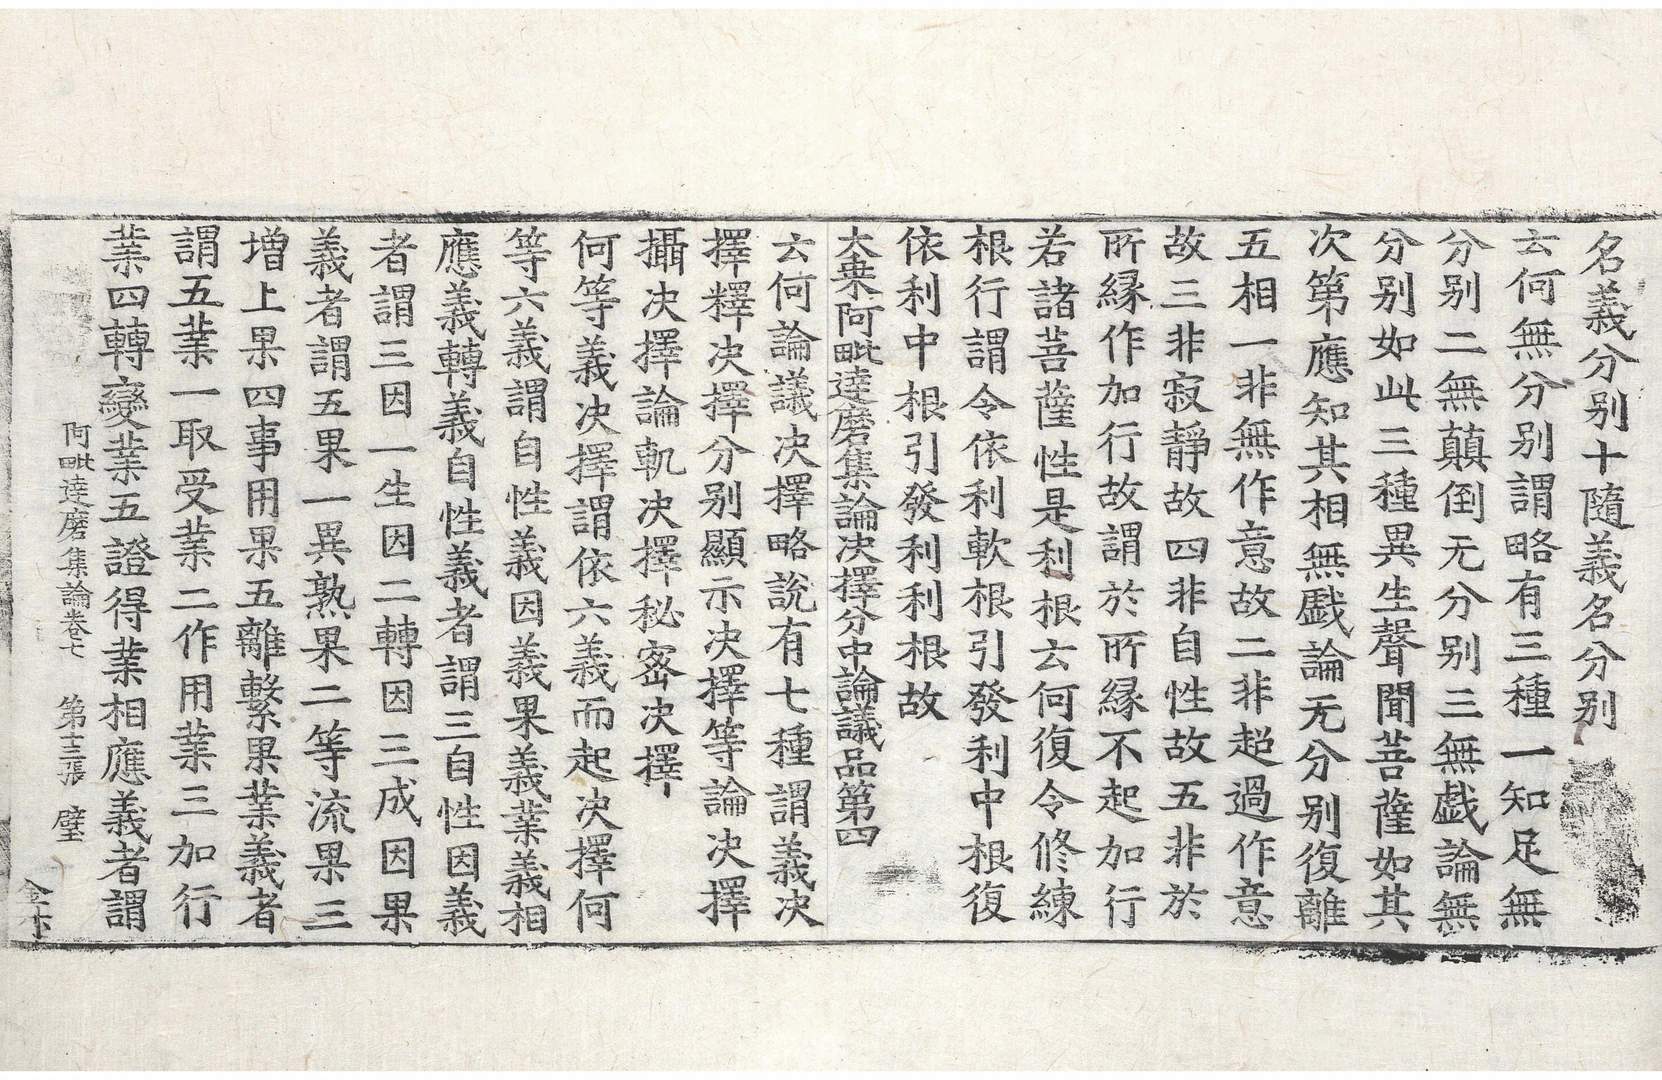 名義分別十隨義名分別
云何無分別謂略有三種一知足無
分別二無顛倒无分別三無戱論無
分別如此三種異生聲聞菩薩如其
次第應知其相無戱論无分別復離
五相一非無作意故二非超過作意
故三非寂靜故四非自性故五非於
所縁作加行故謂於所縁不起加行
若諸菩薩性是利根云何復令修練
根行謂令依利軟根引發利中根復
依利中根引發利利根故
大乘阿毗達磨集論决擇分中論議品第四
云何論議决擇略說有七種謂義决
擇釋决擇分別顯示决擇等論决擇
攝决擇論軌决擇秘密决擇
何等義决擇謂依六義而起决擇何
等六義謂自性義因義果義業義相
應義轉義自性義者謂三自性因義
者謂三因一生因二轉因三成因果
義者謂五果一異熟果二等流果三
増上果四事用果五離繫果業義者
謂五業一取受業二作用業三加行
業四轉變業五證得業相應義者謂
阿毗達磨集論卷七 第十三張 璧